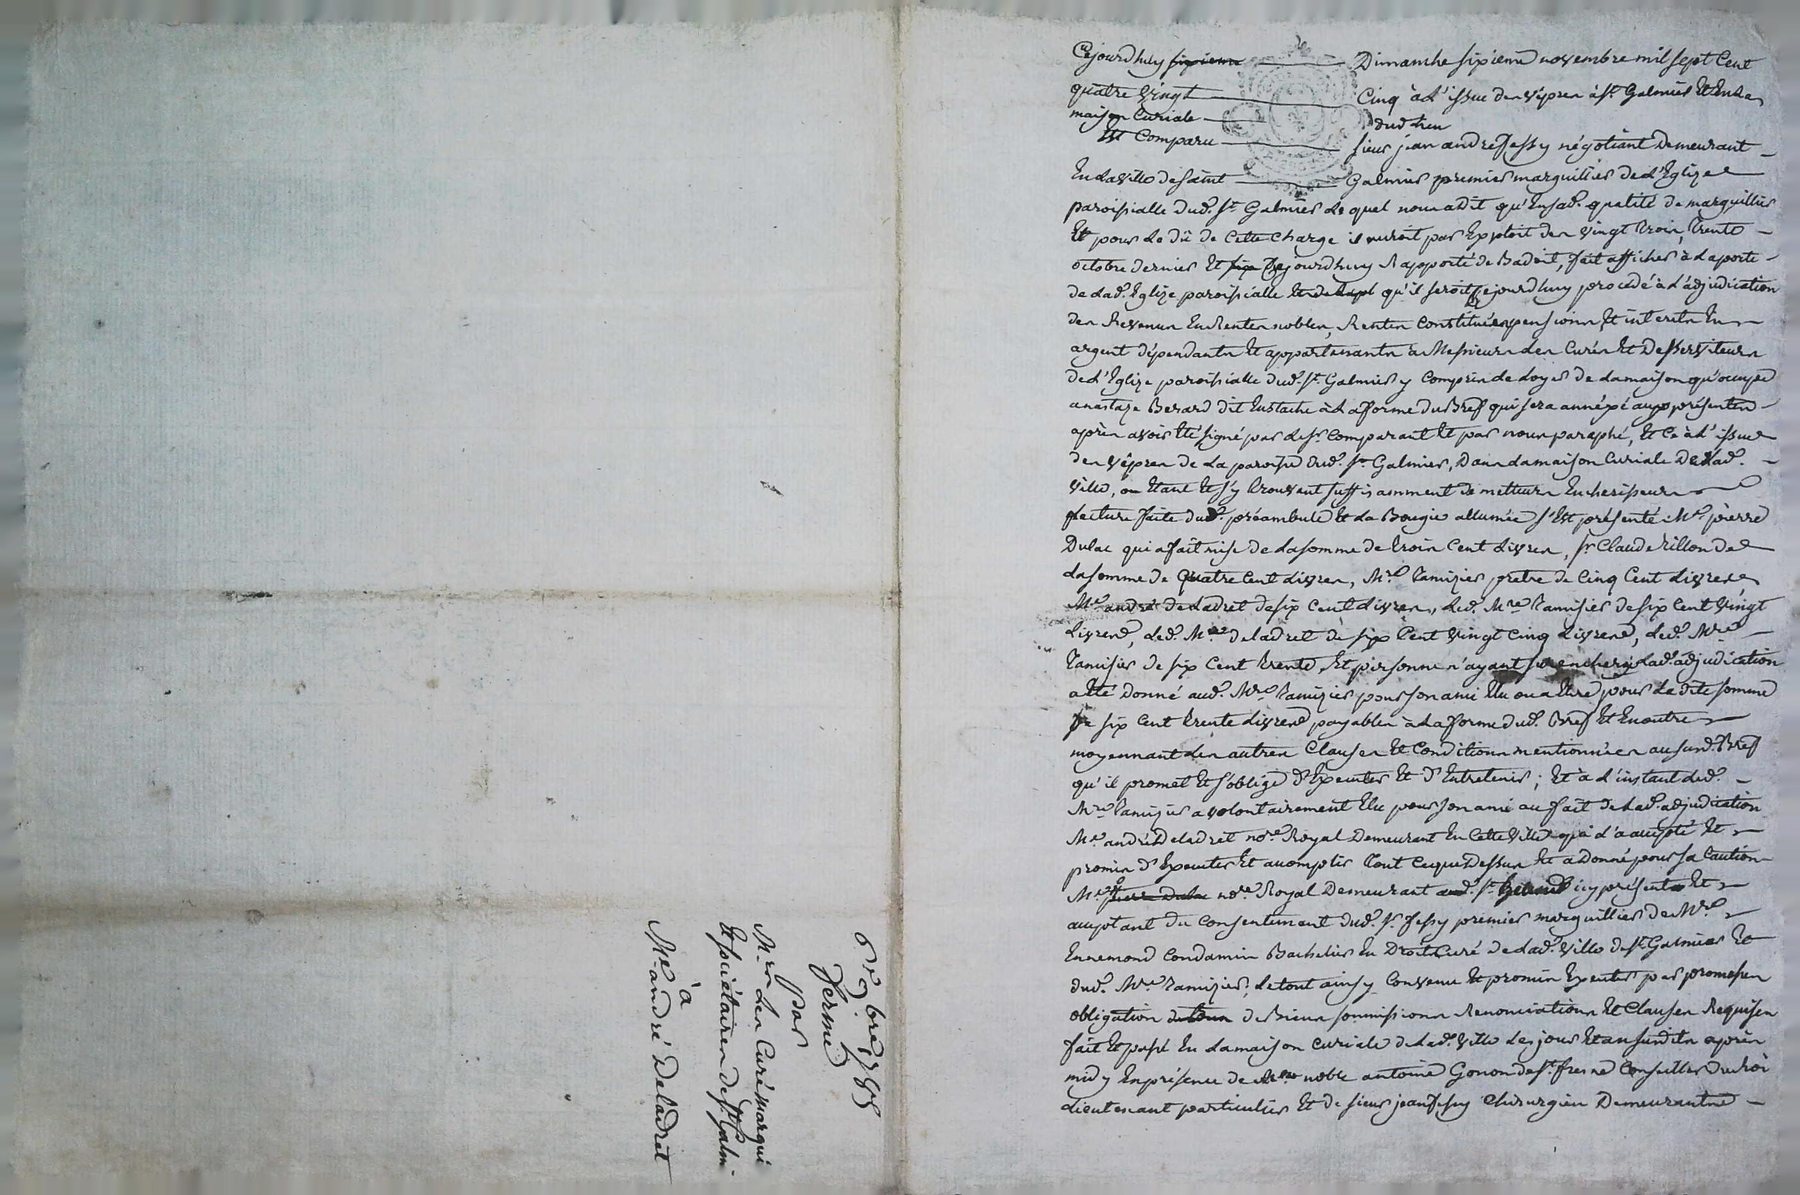 6e 9bre 1785
ferme
par
Mrs les Curé, Margui
Et sociétaires de St Galm.
à
Me andré Deladret
Cejourdhuy sixieme Dimanche sixieme novembre mil sept Cent
quatre vingt Cinq à l'issue des vêpres à St Galmier Et En la
maison Curiale dud. lieu
Est Comparu sieur jean andré Jessy négotiant Demeurant
En la ville de saint Galmier premier marguillier de L'Eglize
paroissialle dud. St Galmier Lequel nous a dit qu'En sad. qualité de marguillier
Et pour le dû de Cette charge il auroit par Exploit des vingt trois, trente
octobre dernier Et Cejourdhuy Rapporté de Badoit, fait afficher à la porte
de lad. Eglize paroissialle qu'il seroit Cejourdhuy procédé à l'adjudication
des Revenus En Rentes nobles, Rentes Constituées pensions, Et interets En
argent dépendants Et appartenants à Messieurs les Curés Et Desserviteurs
de L'Eglize paroissialle dud. St Galmier y Compris le Loyer de la maison qu'occupe
anastaze Berard dit Eustache à la forme du Bref qui sera annéxé aux présentes
après avoir Eté signé par le sr Comparant Et par nous paraphé, Et Ce à l'issue
des vêpres de la paroisse dud. St Galmier, Dans la maison Curiale De lad.
ville, ou Etant Et s'y trouvant suffisamment de metteurs Encherisseurs
Lecture faite dud. préambule Et la Bougie allumée s'Est présenté Me pierre
Dulac qui a fait mise de la somme de trois Cent Livres, sr Claude Rillon de
la somme de Quatre Cent Livres, Mre Tamizier pretre de Cinq Cent Livres
Me andré de Ladret de six Cent Livres, Led. Mre Tamisier de six Cent vingt
Livres, Led. Me deladret de six Cent vingt Cinq Livres, Led. Mre
Tamisier de six Cent trente, Et personne n'ayant surencheri Lad. adjudication
a Eté Donné aud. Mre Tamizier pour son ami Elu ou a Elire pour La dite somme
De six Cent trente Livres payables à la forme dud. Bref Et En outre
moyennant les autres Clauses Et Conditions mentionnées au susd. Bref
qu'il promet Et s'oblige D'Executer Et D'Entretenir; Et à L'instant Led.
Mre Tamizier a volontairement Elu pour son ami au fait de Lad. adjudication
Me andré Deladret nore Royal Demeurant En Cette ville qui L'a accepté Et
promis D'Executer Et accomplir tout Ce que Dessus Et a Donné pour sa Caution
Me pierre Dulac nore Royal Demeurant aud. St icy présent Et
acceptant du Consentement dud. sr Jessy premier marguillier de Mre
Ennemond Condamin Bachelier En Droit Curé de Lad. ville de St Galmier Et
dud. Mre Tamizier, Le tout ainsy Convenu Et promis Executer par promesses
obligation de Biens soumissions Renonciations Et Clauses Requises
fait Et passé En La maison Curiale de Lad. ville Les jour Et an susdits après
midy En présence de noble antoine Gonon de St fresne Conseiller du Roi
Lieutenant particulier Et de sieur jean Jessy Chirurgien Demeurants